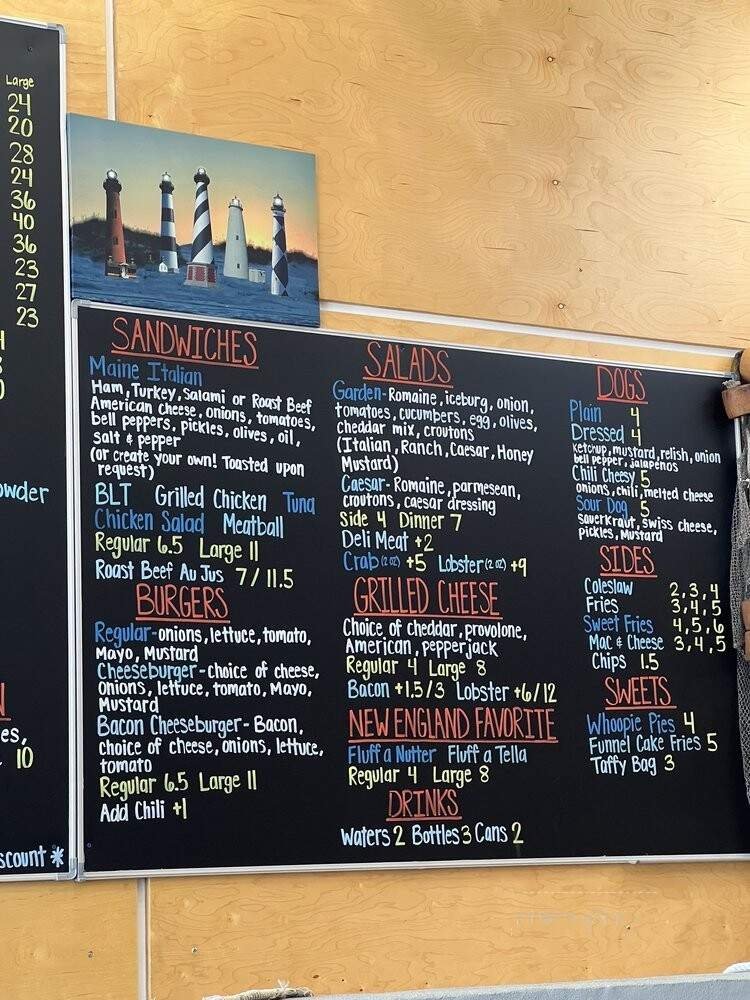 Large
24
20
28
24
36
40
36
23
27
23
owder
es,
10
scount *
SANDWICHES
Maine Italian
Ham, Turkey, Salami or Roast Beef
American cheese, onions, tomatoes,
bell peppers, pickles, olives, oil,
salt & pepper
(or create your own! Toasted upon
request)
BLT Grilled Chicken Tuna
Chicken Salad Meatball
Regular 6.5 Large 11
Roast Beef Au Jus 7/11.5
BURGERS
Regular-onions, lettuce, tomato,
Mayo, Mustard
Cheeseburger-choice of cheese,
onions, lettuce, tomato, Mayo,
Mustard
Bacon Cheeseburger-Bacon,
choice of cheese, onions, lettuce,
tomato
Regular 6.5 Large 11
Add Chili +1
SALADS
Garden-Romaine, iceburg, onion,
tomatoes, cucumbers, egg, olives,
cheddar mix, croutons
(Italian, Ranch, Caesar, Honey
Mustard)
Caesar-Romaine, parmesean,
croutons, caesar dressing
Side 4 Dinner 7
Deli Meat +2
Crab (2 oz) +5 Lobster (2 oz) +9
GRILLED CHEESE
Choice of cheddar, provolone,
American, pepperjack
Regular 4 Large 8
Bacon +1.5/3 Lobster +6/12
NEW ENGLAND FAVORITE
Fluff a Nutter Fluff a Tella
Regular 4 Large 8
DRINKS
Waters 2 Bottles 3 Cans 2
DOGS
Plain 4
Dressed 4
Ketchup, mustard, relish, onion
bell pepper, jalapenos
Chili Cheesy 5
onions, chili, melted cheese
Sour Dog 5
Sauerkraut, swiss cheese,
pickles, Mustard
SIDES
Coleslaw 2,3,4
Fries 3,4,5
Sweet Fries 4,5,6
Mac & Cheese 3,4,5
Chips 1.5
SWEETS
Whoopie Pies 4
Funnel Cake Fries 5
Taffy Bag 3